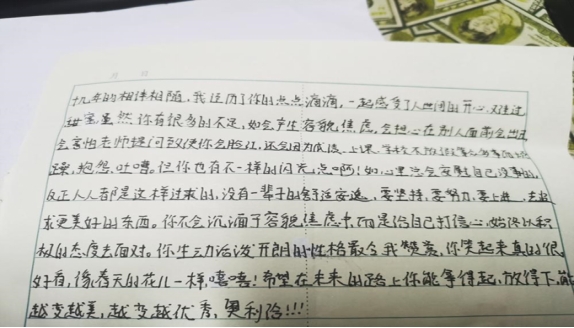 十九年的相伴相随,我经历了你的点点滴滴,一起感受了人世间的开心、难过
甜蜜,虽然你有很多的不足,如会产生容貌焦虑,会担心在别人面前会出
会害怕老师提问致使你会脸红,还会因为成绩、上课、
躁,抱怨,吐嘈。但你也有不一样的闪光点啊!如,心里总会安慰自己没事的,
反正人人都是这样过来的,没有一辈子的舒适安逸,要坚持,要努力,要上进,去追
求更美好的东西。你不会沉湎于容貌焦虑中,而是给自己打信心,始终以积
极的态度去面对。你生动活泼开朗的性格最令我赞赏,你笑起来真的很
好看,像春天的花儿一样,嘻嘻!希望在未来的路上你能拿得起,放得下,能
越变越美,越变越优秀,奥利给!!!